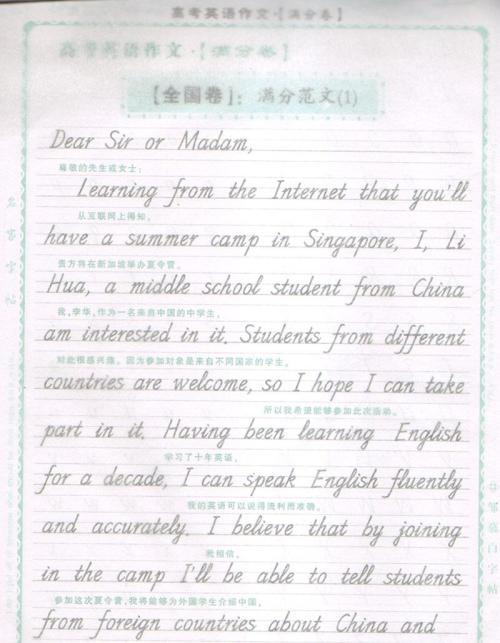 高考英语作文·【满分卷】
高考英语作文·【满分卷】
【全国卷】：满分范文(1)
Dear Sir or Madam,
尊敬的先生或女士：
Learning from the Internet that you'll
从互联网上得知，
have a summer camp in Singapore, I, Li
贵方将在新加坡举办夏令营，
Hua, a middle school student from China
我，李华，作为一名来自中国的中学生，
am interested in it. Students from different
对此很感兴趣。因为参加对象是来自不同国家的学生，
countries are welcome, so I hope I can take
所以我希望能够参加此次活动。
part in it. Having been learning English
学习了十年英语，
for a decade, I can speak English fluently
我的英语可以说得流利而准确。
and accurately. I believe that by joining
我相信，
in the camp I'll be able to tell students
参加这次夏令营，我将能够为外国学生介绍中国，
from foreign countries about China and
名家字帖